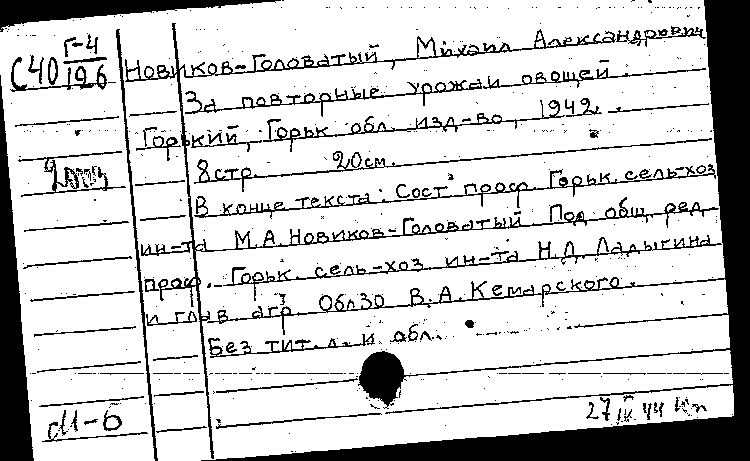 С40 Г-4/126
Новиков-Головатый, Михаил Александрович
За повторные урожаи овощей.
Горький, Горьк. обл. изд-во, 1942.
8 стр. 20 см.
В конце текста: Сост. проф. Горьк. сель-хоз
ин-та М.А. Новиков-Головатый. Под общ. ред.
проф. Горьк. сель-хоз ин-та Н.Д. Ладыгина
и глав. агр. ОблЗО В.А. Кемарского.
Без тит. л. и обл.
М-б
27 IV 44